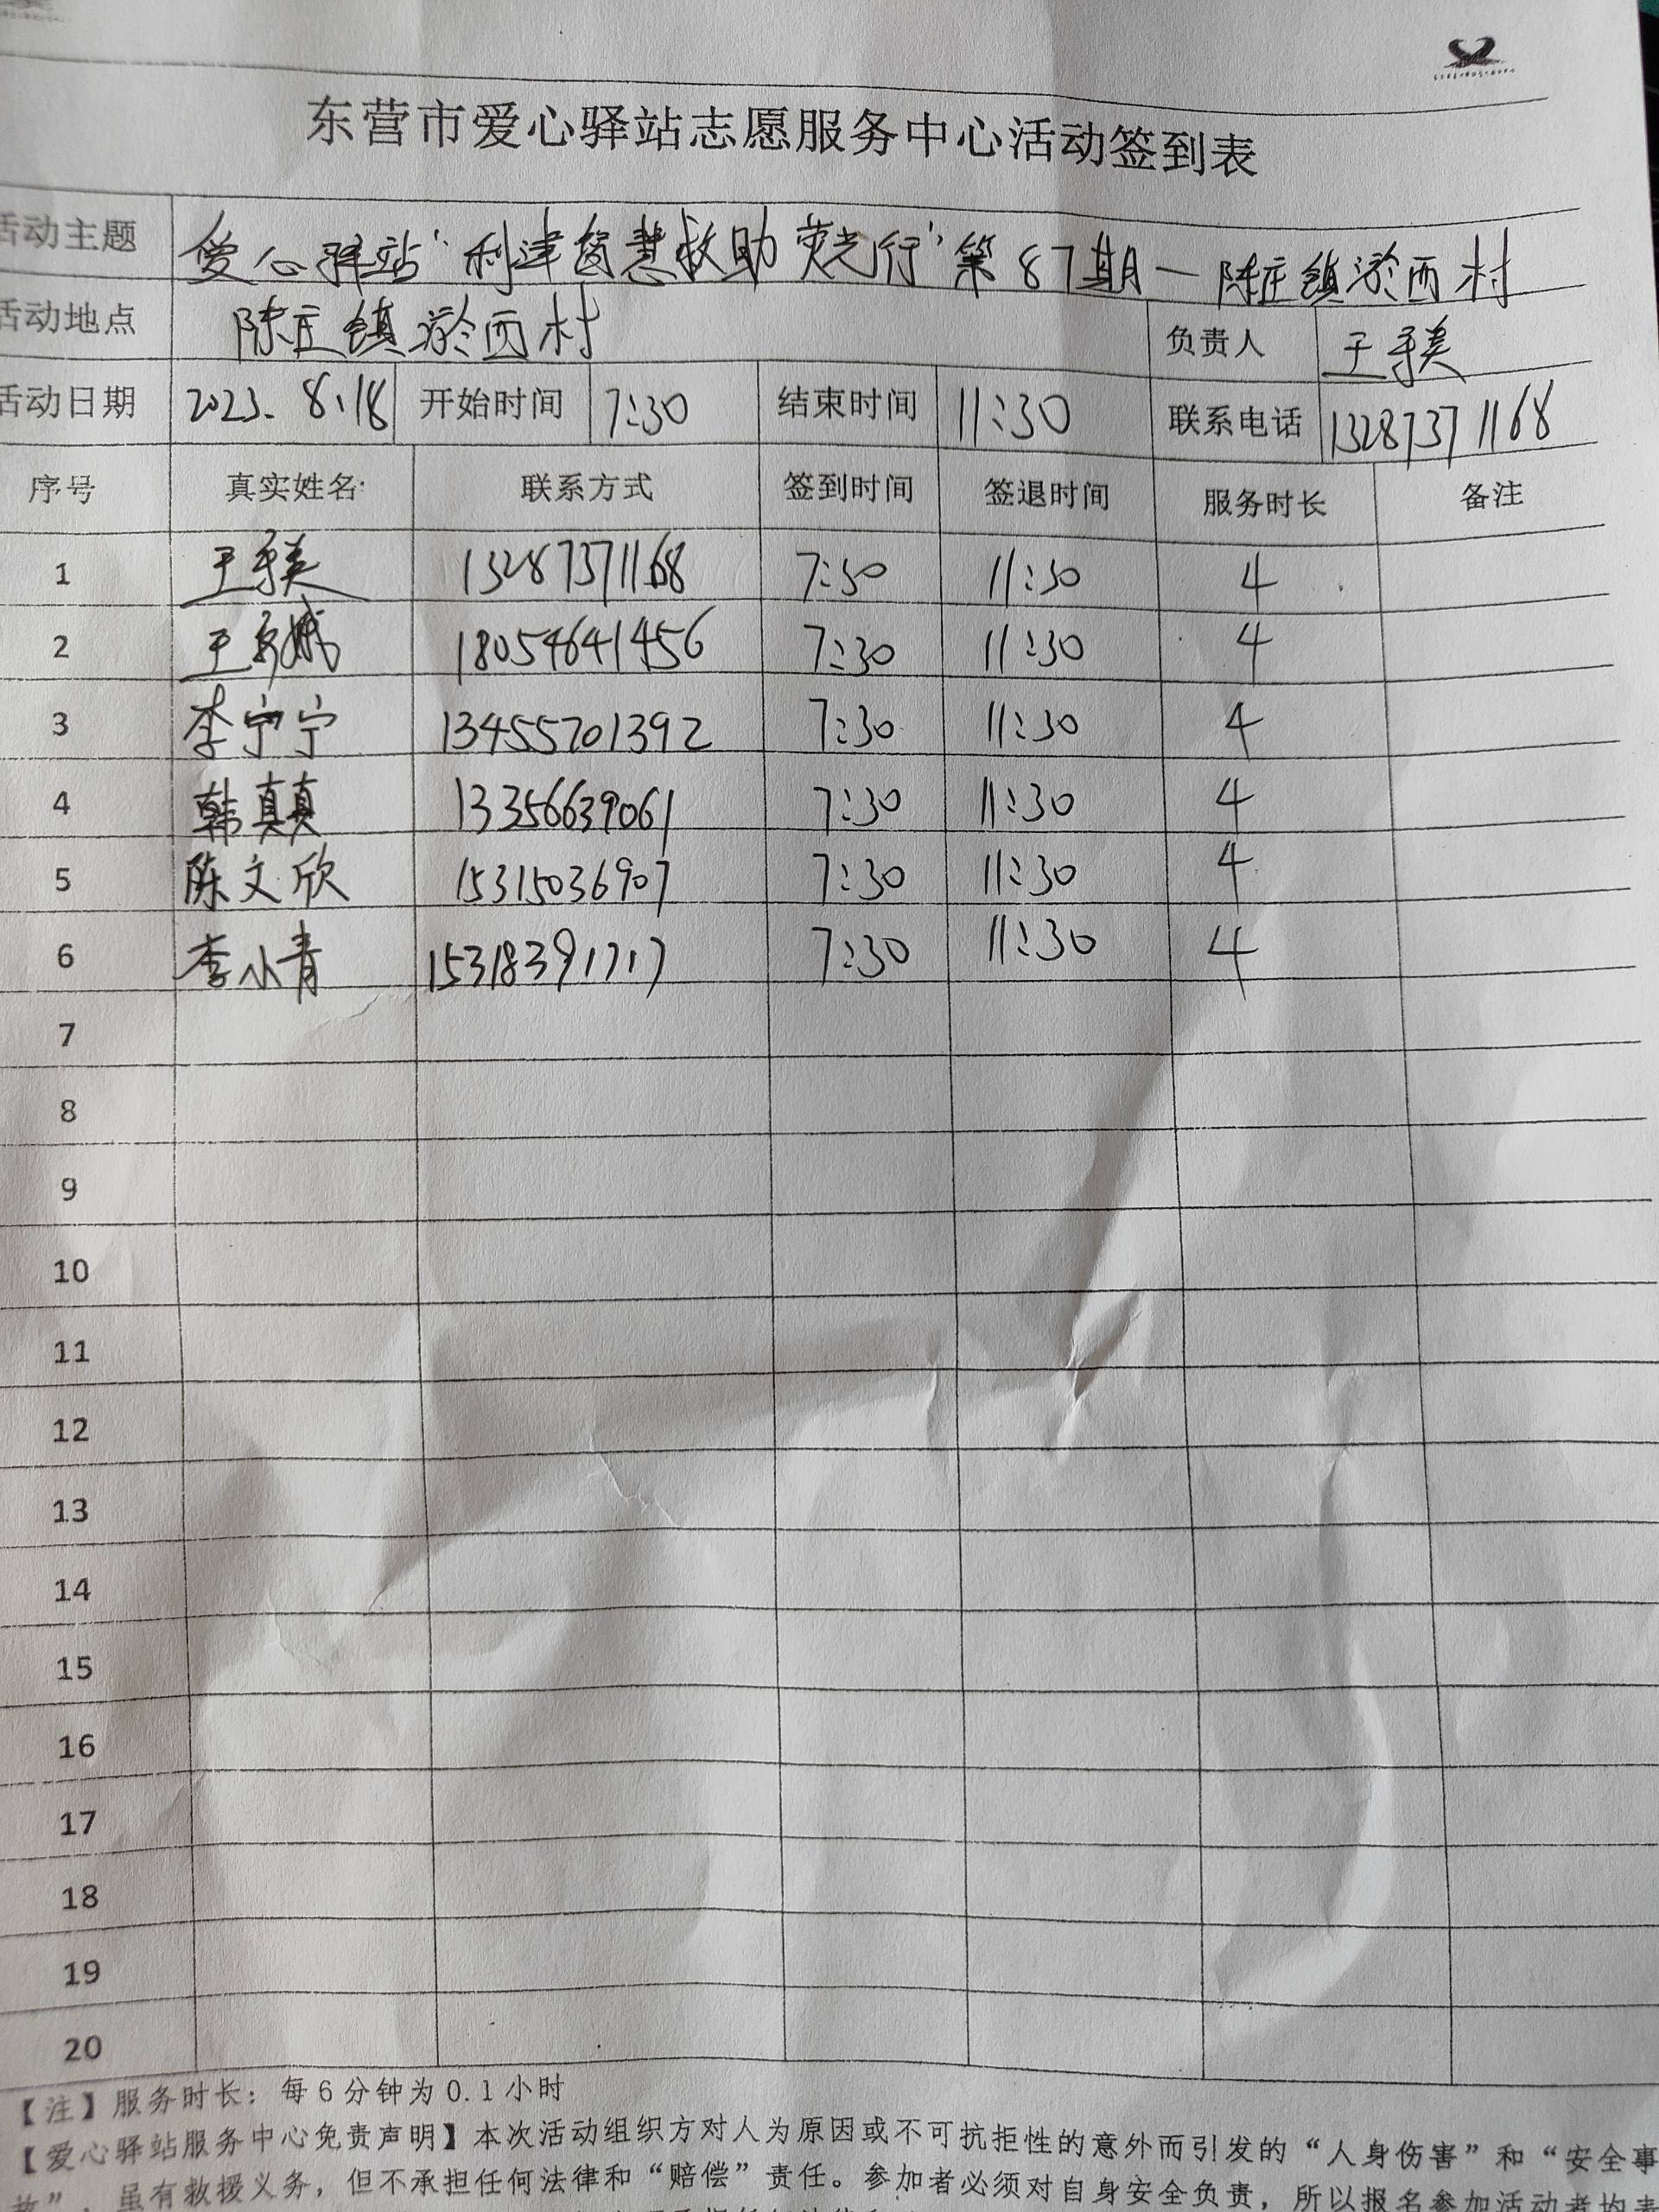 东营市爱心驿站志愿服务中心活动签到表
活动主题 爱心驿站“利津智慧救助荧光行”第87期—陈庄镇淤西村
活动地点 陈庄镇淤西村 负责人 王美
活动日期 2023.8.18 开始时间 7:30 结束时间 11:30 联系电话 13287371168
序号 真实姓名 联系方式 签到时间 签退时间 服务时长 备注
1 王美 13287371168 7:30 11:30 4
2 王娥 18054641456 7:30 11:30 4
3 李宁宁 13455701392 7:30 11:30 4
4 韩真真 13356639061 7:30 11:30 4
5 陈文欣 15315036907 7:30 11:30 4
6 李小青 15318391717 7:30 11:30 4
7
8
9
10
11
12
13
14
15
16
17
18
19
20
【注】服务时长：每6分钟为0.1小时
【爱心驿站服务中心免责声明】本次活动组织方对人为原因或不可抗拒性的意外而引发的“人身伤害”和“安全事
故”，虽有救援义务，但不承担任何法律和“赔偿”责任。参加者必须对自身安全负责，所以报名参加活动者均表